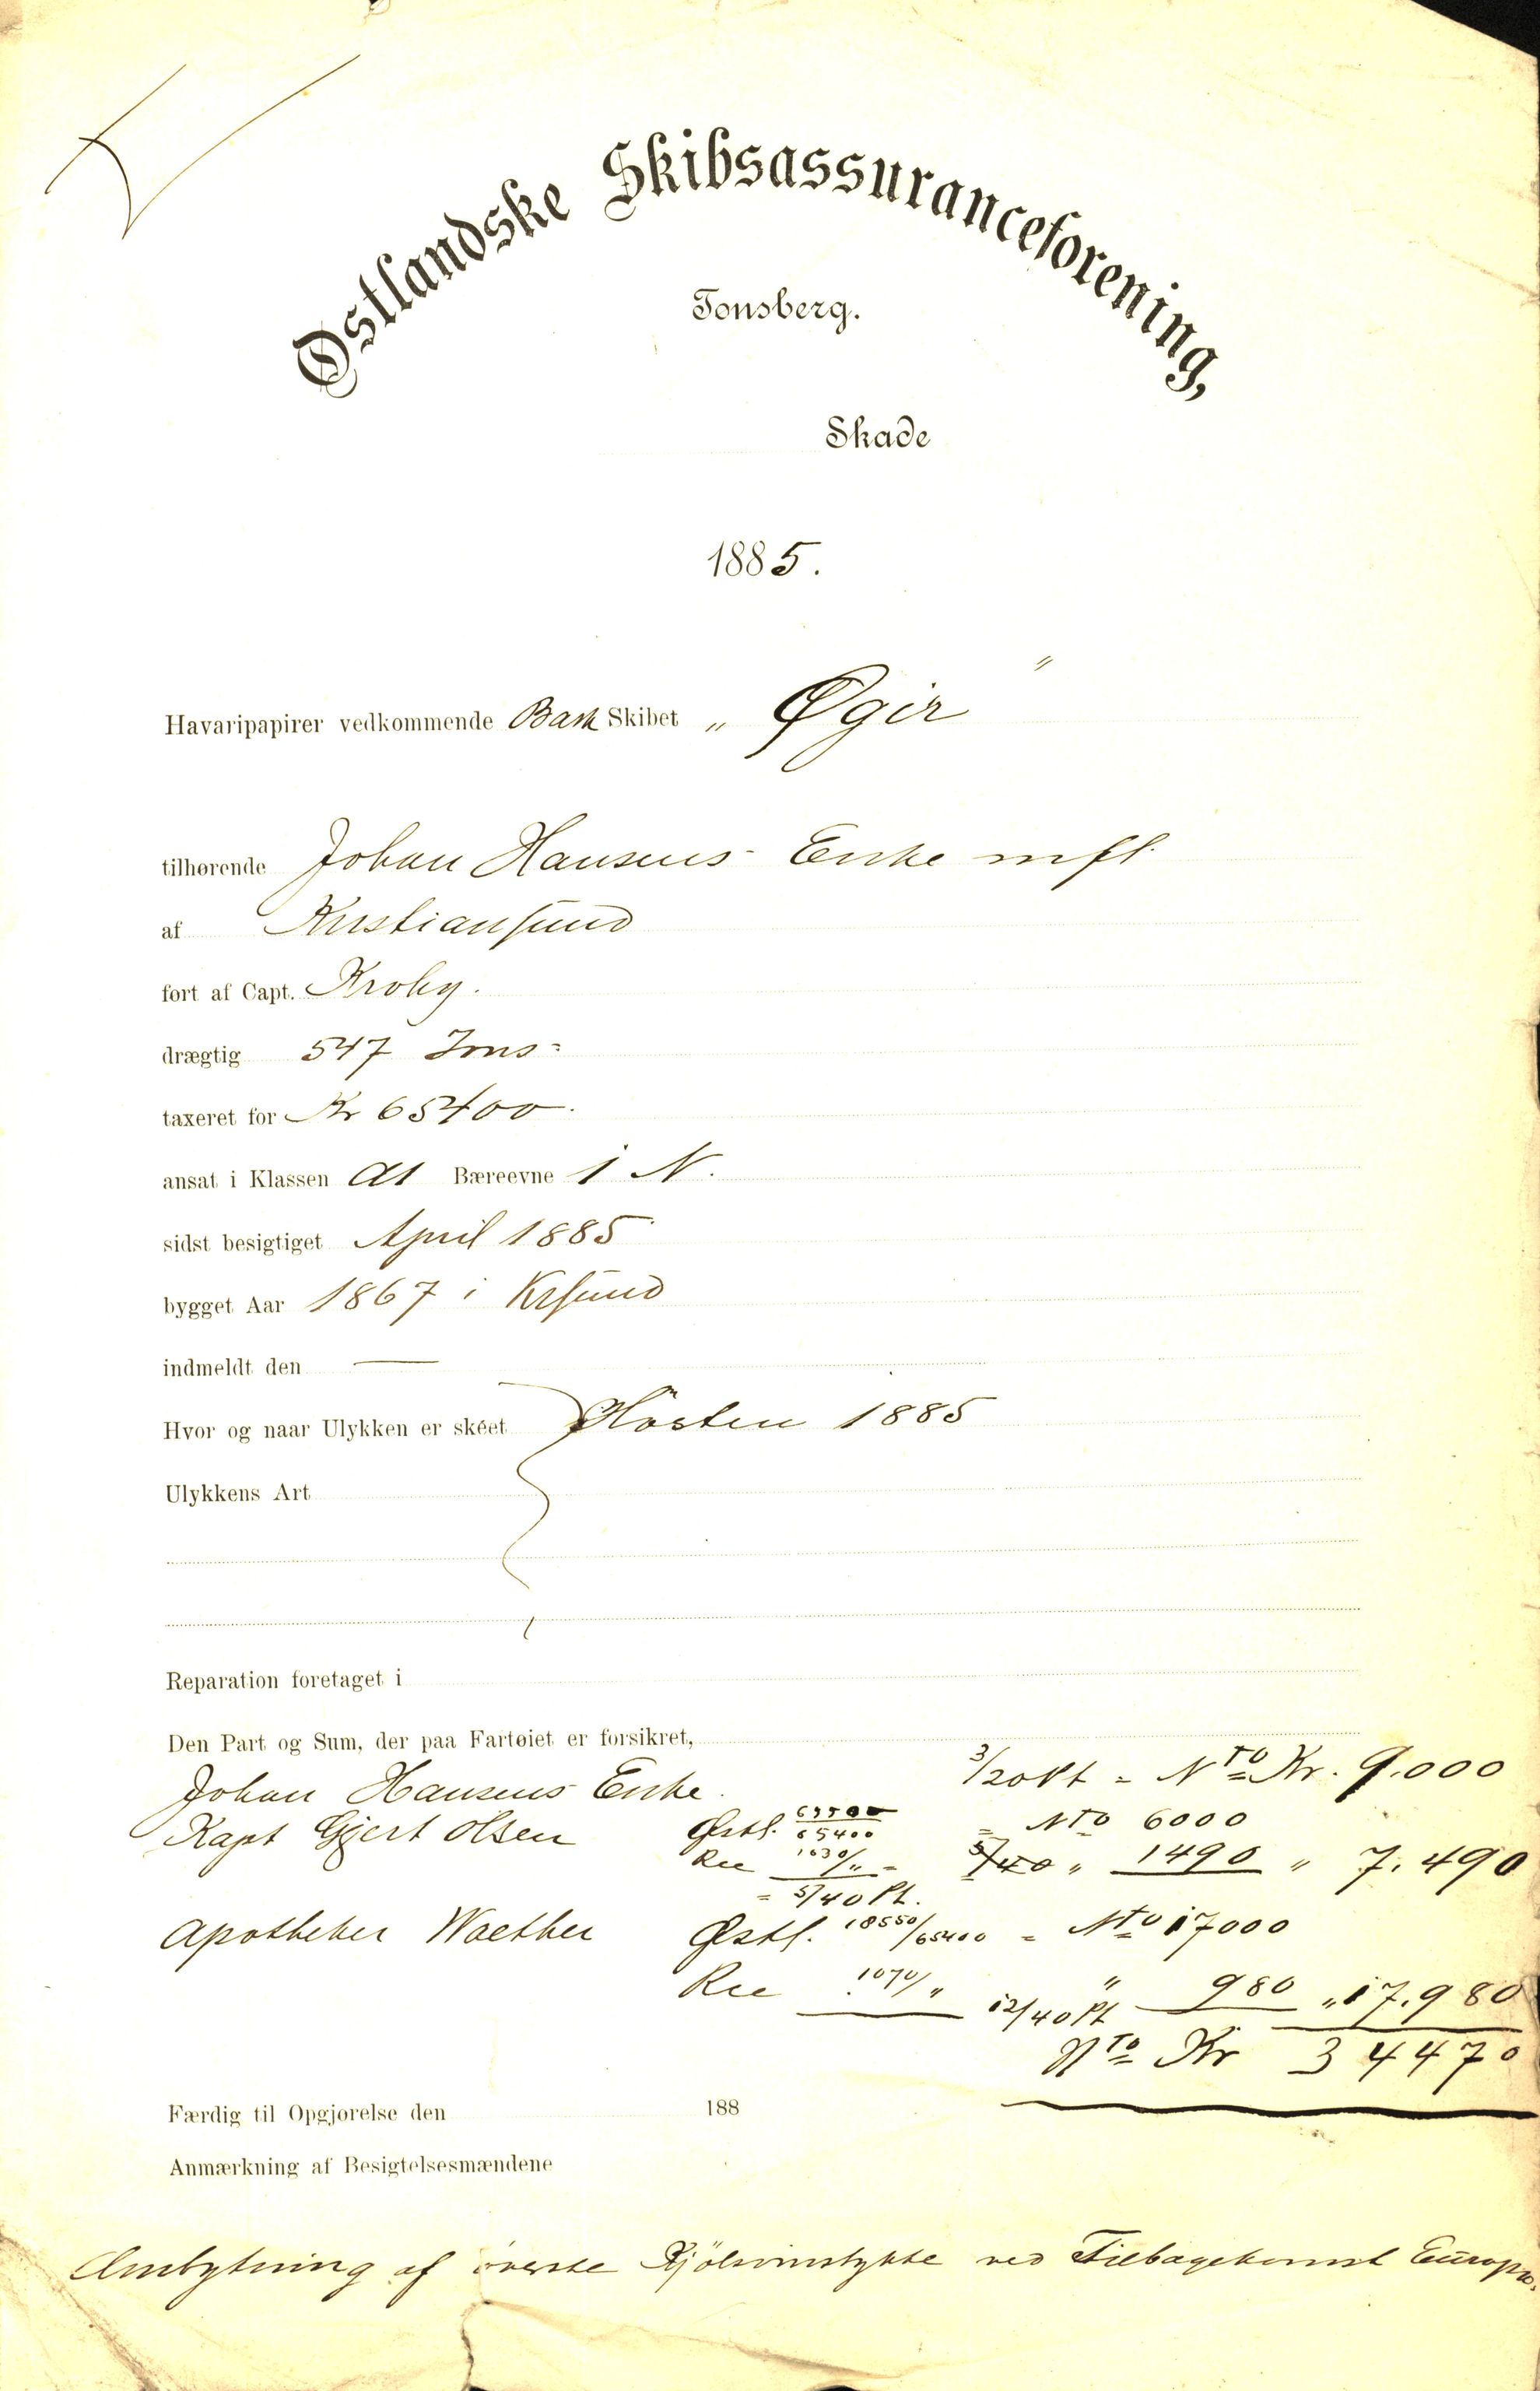 Østlandske Skibsassuranceforening,
Tønsberg.
Skade
1885.
Havaripapirer vedkommende Bark Skibet „Øgir"
tilhørende Johan Hansens Enke mfl.
af Kristiansund
ført af Capt. Kroby.
drægtig 547 Tons
taxeret for Kr 65400.
ansat i Klassen A1 Bæreevne 1 N.
sidst besigtiget April 1885
bygget Aar 1867 i Krsund
indmeldt den —
Hvor og naar Ulykken er skeet Høsten 1885
Ulykkens Art
Reparation foretaget i
Den Part og Sum, der paa Fartøiet er forsikret,
Johan Hansens Enke. 3/20 Pt = Nto Kr. 9.000
Kapt Gjert Olsen Østl. /65400 = Nto 6000
Ree 1630/„ = 5/40 „ 1490 „ 7.490
= 5/40 Pt.
Apotheker Waether Østl. 18550/65400 = Nto 17000
Ree 1070/„ 12/40 Pt " 980 „ 17.980
Nto Kr 34470
Færdig til Opgjørelse den 188
Anmærkning af Besigtelsesmændene
Ombytning af øverste Kjølsvinstykke ved Tilbagekomst Europa.